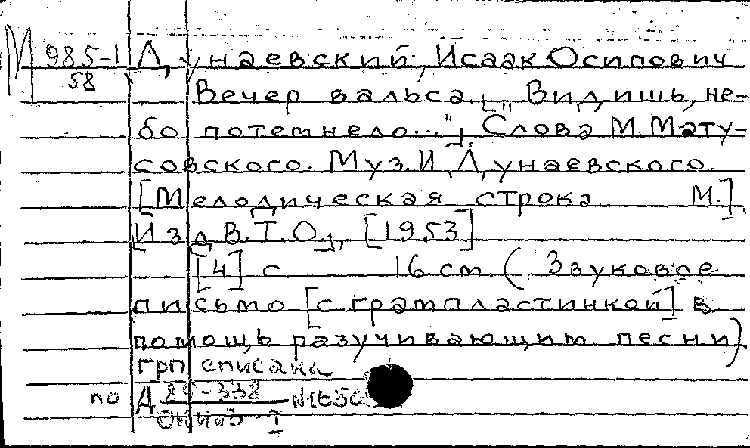 М 985-1 Дунаевский, Исаак Осипович
58
Вечер вальса. [„Видишь, не-
бо потемнело..."]. Слова М. Мату-
совского. Муз. И. Дунаевского.
[Мелодическая строка М.]
Изд. В.Т.О., [1953]
[4] с 16 см (Звуковое
письмо [с грампластинкой] в
помощь разучивающим песни)
грп списана
по Д